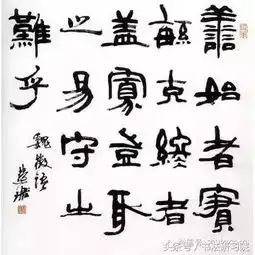 善始者實
繁克終者
蓋寡豈取
之易守之
難乎
魏徵語
头条号